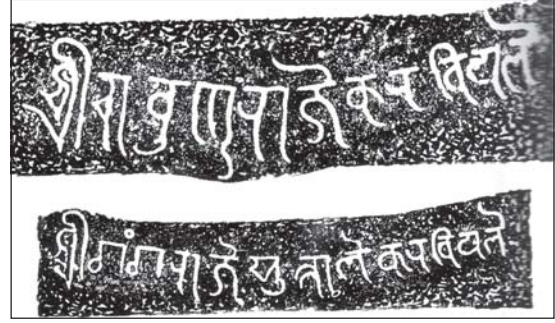 श्रीचावुण्डराजे करवियले
श्रीगंगराजे सुत्ताले करवियले